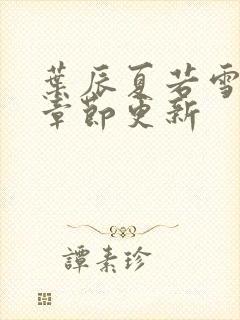 葉辰夏若雪
章節更新
譚素珍